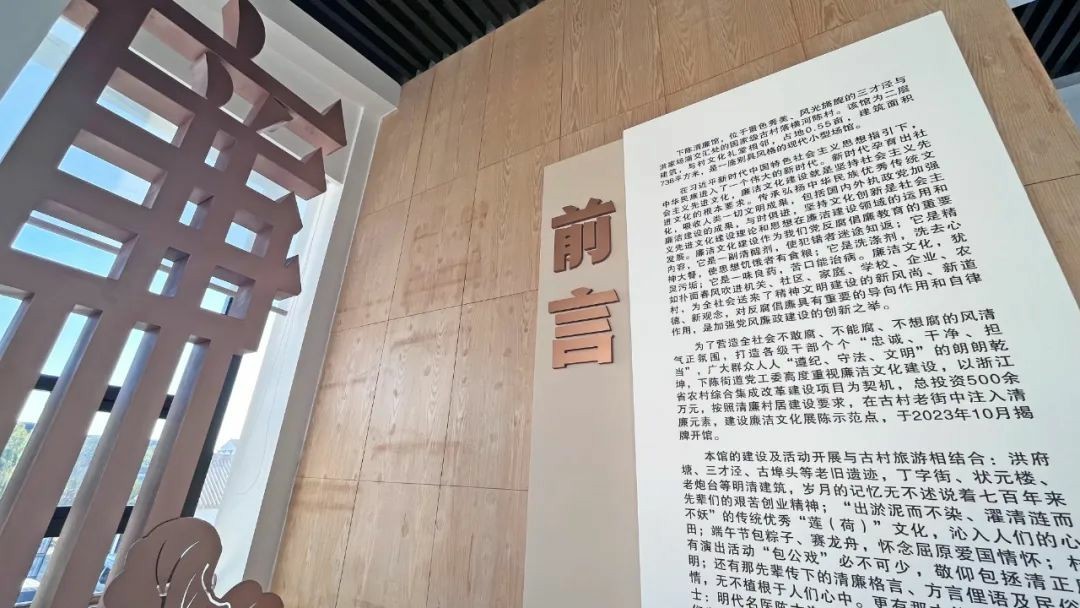 前言
下陈清廉馆，位于景色秀美、风光旖旎的三才泾与
洪家场浦交汇处的国家级古村落横河陈村。该馆为二层
建筑，与村文化礼堂相邻，占地0.55亩，建筑面积
738平方米，是一座别具风格的现代小型场馆。
在习近平新时代中国特色社会主义思想指引下，
中华民族进入了一个伟大的新时代。新时代孕育出社
会主义先进文化，廉洁文化建设就是坚持社会主义先
进文化的根本要求。传承弘扬中华民族优秀传统文
化，吸收人类一切文明成果，包括国内外执政党加强
廉洁建设的成果，与时俱进，坚持文化创新是社会主
义先进文化建设理论和思想在廉洁建设领域的运用和
发展。廉洁文化建设作为我们党反腐倡廉教育的重要
内容，它是一副清醒剂，使犯错者迷途知返；它是精
神大餐，使思想饥饿者有食粮；它是洗涤剂，洗去心
灵污垢；它是一味良药，苦口能治病。廉洁文化，犹
如扑面春风吹进机关、社区、家庭、学校、企业、农
村，为全社会送来了精神文明建设的新风尚、新道
德、新观念，对反腐倡廉具有重要的导向作用和自律
作用，是加强党风廉政建设的创新之举。
为了营造全社会不敢腐、不能腐、不想腐的风清
气正氛围，打造各级干部个个“忠诚、干净、担
当”，广大群众人人“遵纪、守法、文明”的朗朗乾
坤，下陈街道党工委高度重视廉洁文化建设，以浙江
省农村综合集成改革建设项目为契机，总投资500余
万元，按照清廉村居建设要求，在古村老街中注入清
廉元素，建设廉洁文化展陈示范点，于2023年10月揭
牌开馆。
本馆的建设及活动开展与古村旅游相结合：洪府
塘、三才泾、古埠头等老旧遗迹，丁字街、状元楼、
老炮台等明清建筑，岁月的记忆无不述说着七百年来
先辈们的艰苦创业精神；“出淤泥而不染、濯清涟而
不妖”的传统优秀“莲（荷）”文化，沁入人们的心
田；端午节包粽子、赛龙舟，怀念屈原爱国情怀；村
有演出活动“包公戏”必不可少，敬仰包拯清正
明；还有那先辈传下的清廉格言、方言俚语及民俗
情，无不植根于人们心中。更有那
士：明代名医陈